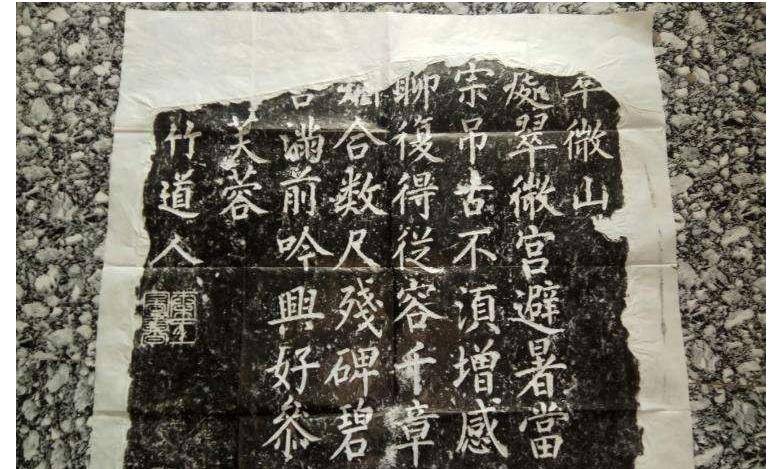 微山
處翠微宮避暑當
宗吊古不須增感
聊復得從容千章
合数尺殘碑碧
滿前吟興好参
芙蓉
竹道人